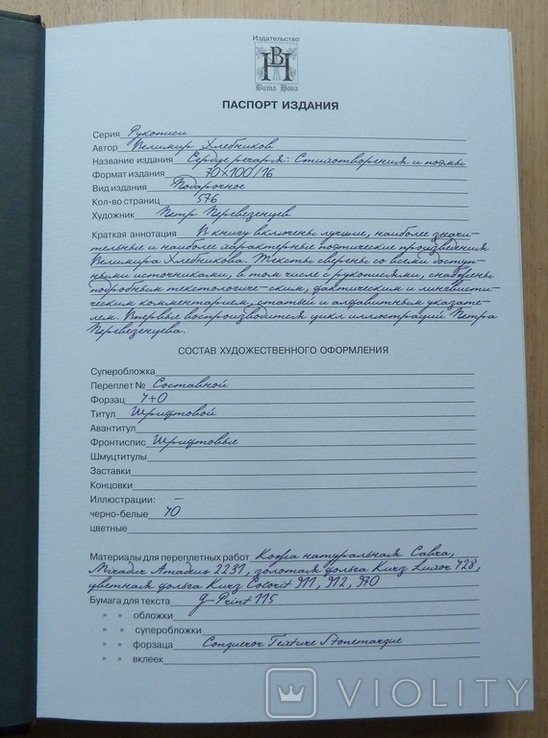 Издательство
ВН
Вита Нова
ПАСПОРТ ИЗДАНИЯ
Серия Рукописи
Автор Велимир Хлебников
Название издания Сердце речаря: Стихотворения и поэмы
Формат издания 70×100/16
Вид издания Подарочное
Кол-во страниц 576
Художник Петр Перевезенцев
Краткая аннотация В книгу включены лучшие, наиболее значи-
тельные и наиболее характерные поэтические произведения
Велимира Хлебникова. Тексты сверены со всеми доступ-
ными источниками, в том числе с рукописями, снабжены
подробным текстологиче-ским, фактическим и лингвисти-
ческим комментарием, статьей и алфавитным указате-
лем. Впервые воспроизводится цикл иллюстраций Петра
Перевезенцева.
СОСТАВ ХУДОЖЕСТВЕННОГО ОФОРМЛЕНИЯ
Суперобложка
Переплет № Составной
Форзац 1+0
Титул Шрифтовой
Авантитул
Фронтиспис Шрифтовые
Шмуцтитулы
Заставки
Концовки
Иллюстрации: –
черно-белые 40
цветные
Материалы для переплетных работ Кожа натуральная Савча,
Miradur Amadeus 2231, золотая фольга Kurz Luxor 428,
цветная фольга Kurz Colorit 911, 912, 970
Бумага для текста g-Print 115
» » обложки
» » суперобложки
» » форзаца Conqueror Texture Stonemarque
» » вклеек
VIOLITY